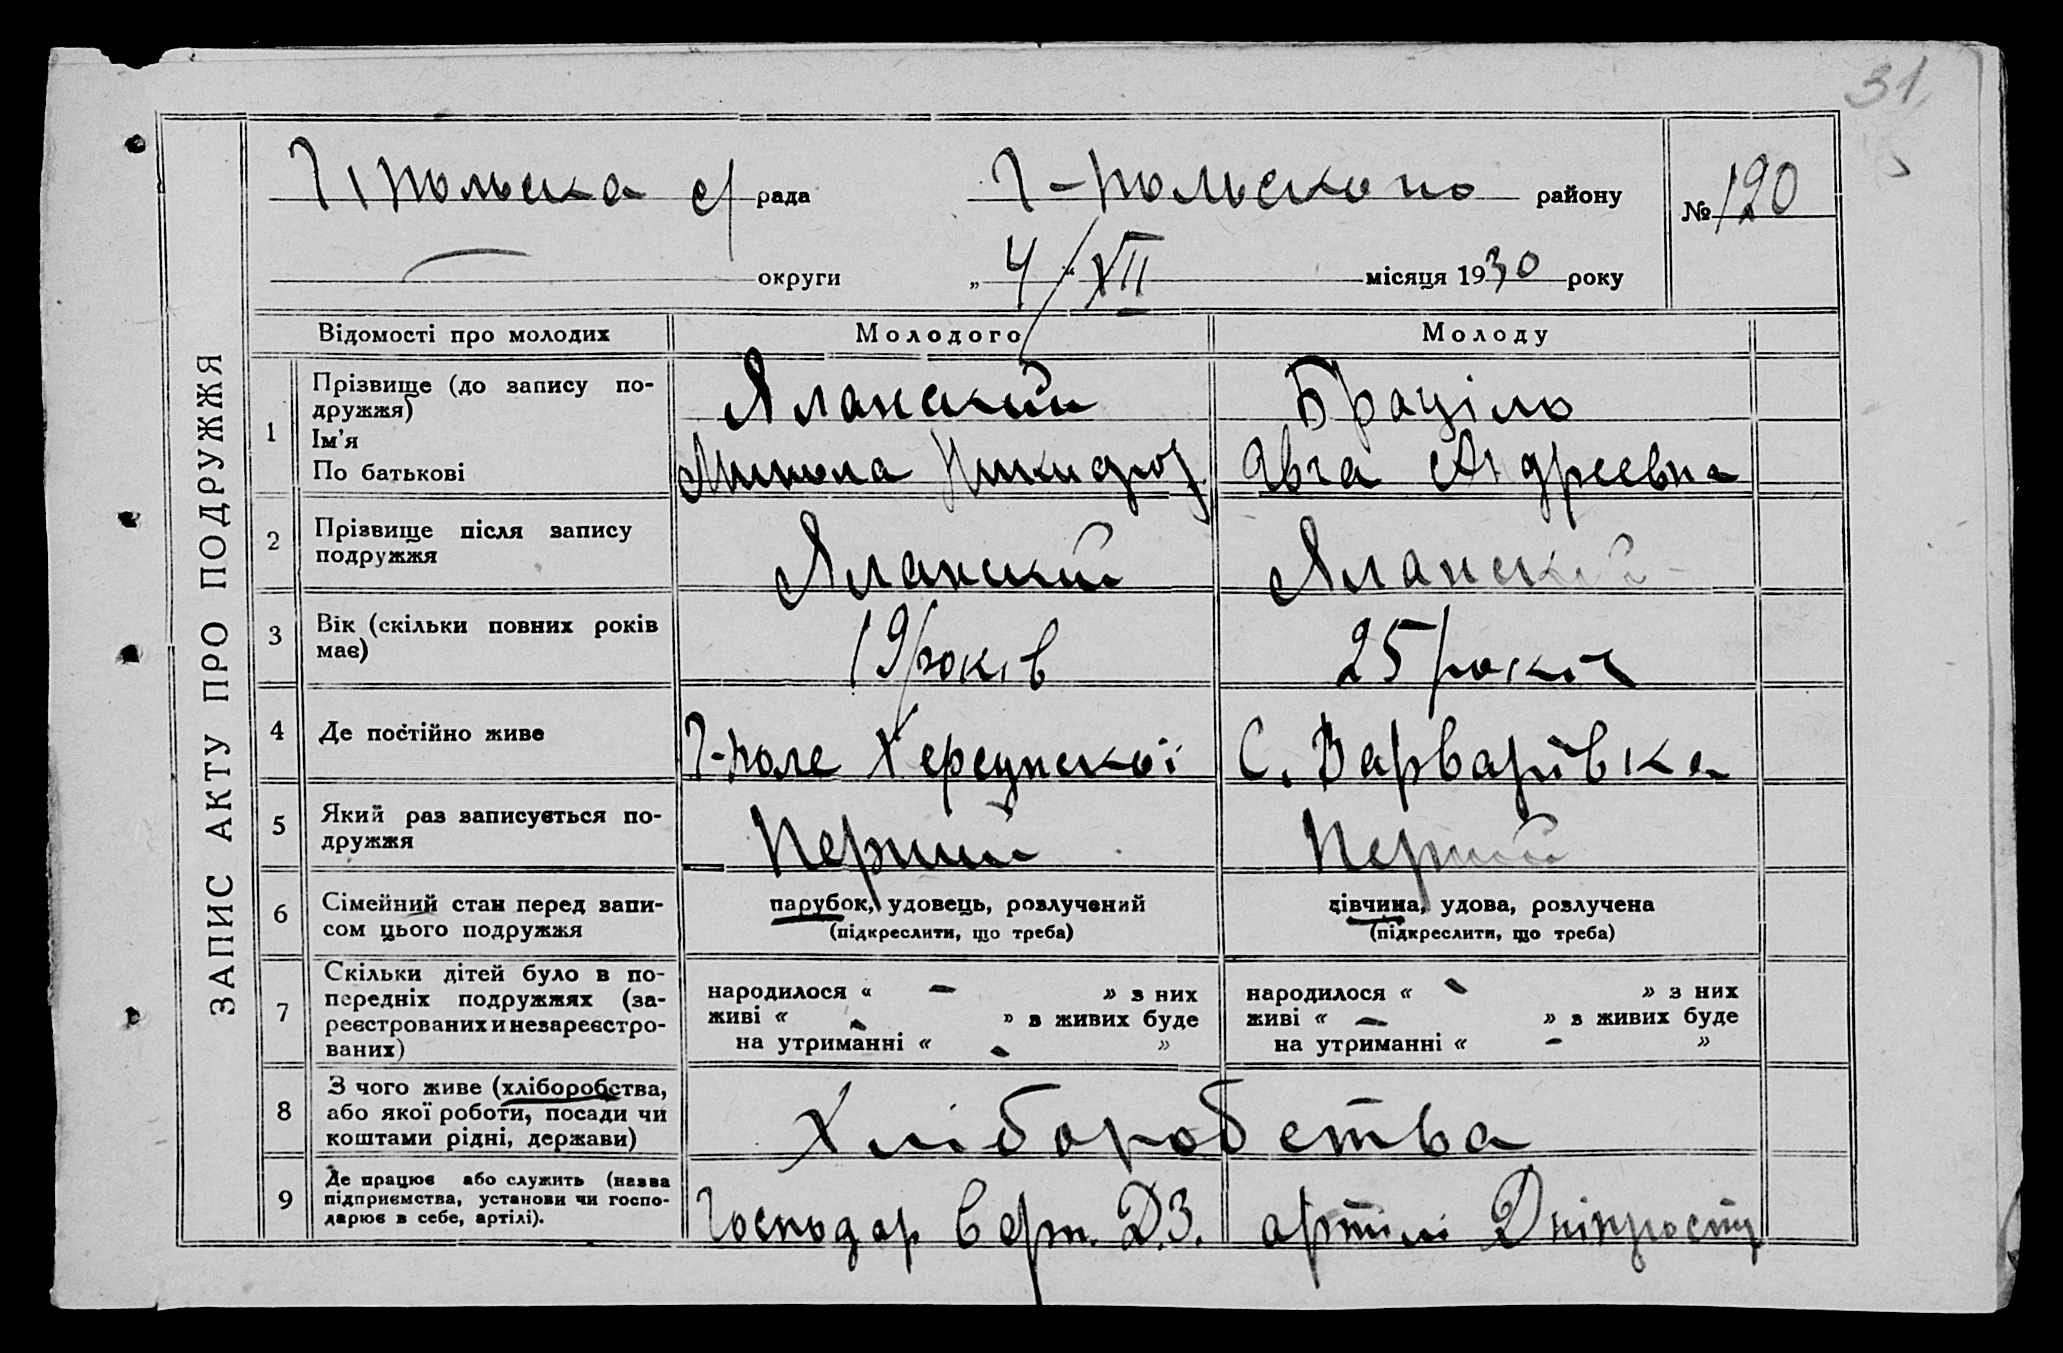 31
Г/польска с/рада Г-польского району
№ 120
округи „4“ XII місяця 1930 року
ЗАПИС АКТУ ПРО ПОДРУЖЖЯ
Відомості про молодих Молодого Молоду
1 Прізвище (до запису по-
дружжя) Яланский Браціло
Ім'я
По батькові Микола Явга Андреевна
2 Прізвище після запису
подружжя Яланский Яланский
3 Вік (скільки повних років
має) 19 років 25 років
4 Де постійно живе Г-поле Херсунскої С. Варварівка
5 Який раз записується по-
дружжя Перший Перший
6 Сімейний стан перед запи-
сом цього подружжя
парубок, удовець, розлучений
(підкреслити, що треба)
дівчина, удова, розлучена
(підкреслити, що треба)
7 Скільки дітей було в по-
передніх подружжях (за-
реєстрованих и незареєстро-
ваних)
народилося « - » з них
живі « - » з живих буде
на утриманні « - »
народилося « - » з них
живі « - » з живих буде
на утриманні « - »
8 З чого живе (хліборобства,
або якої роботи, посади чи
коштами рідні, держави)
Хліборобства
9 Де працює або служить (назва
підприємства, установи чи госпо-
дарює в себе, артілі).
Господар в арт. Д.З. артілі